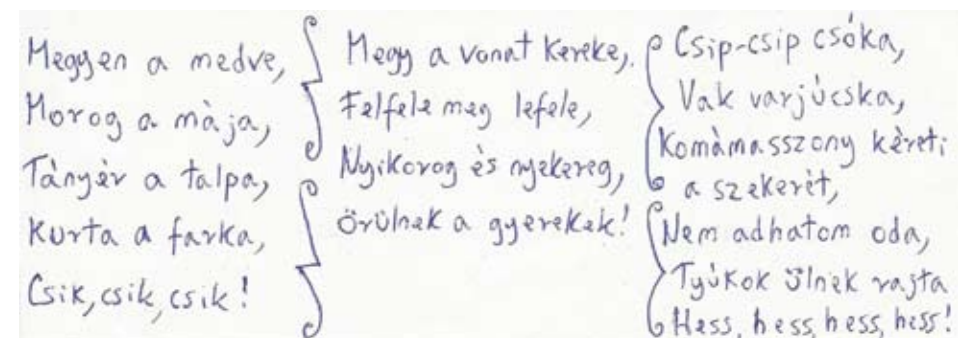 Megyen a medve,
Morog a mája,
Tányér a talpa,
Kurta a farka,
Csik, csik, csik!
Megy a vonat kereke,
Felfele meg lefele,
Nyikorog és nyekereg,
Örülnek a gyerekek!
Csip-csip csóka,
Vak varjúcska,
Komámasszony kéreti
a szekerét,
Nem adhatom oda,
Tyúkok ülnek rajta
Hess, hess, hess, hess!